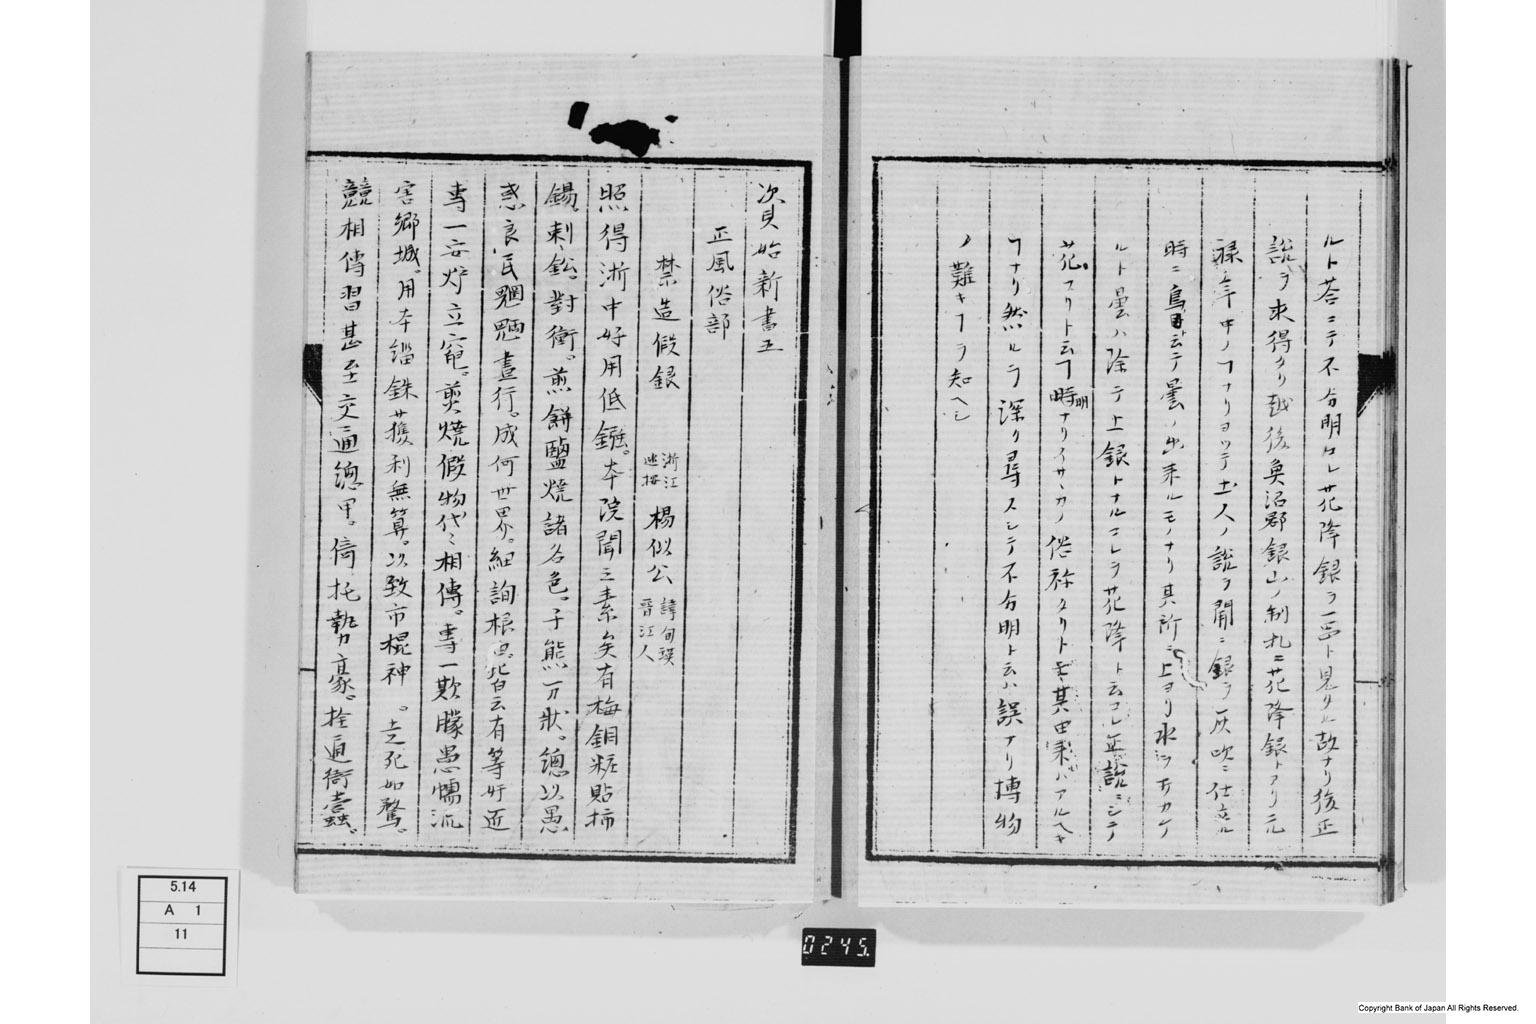 ルト荅ニテ不分明ナレ𪜈花降銀ヲ一品ト見タル故ナリ後正
説ヲ求得タリ越後奠沼郡銀山ノ制札ニ花降銀トアリ元
禄年中ノ𪜈ナリヨツテ土人ノ説ヲ聞ニ銀ヲ灰吹ニ仕立ル
時ニ烏目云テ曇ノ出来ルモノナリ其所ニ上ヨリ水ヲサカケ
ルト曇ハ除テ上銀トナルコレヲ花降ト云コレ正説ニシテ
花フリト云フ時明ナリイサヽカノ俗称タリト𪜈其由来ハアルヘキ
フナリ然ルヲ深ク尋スシテ不分明ト云ハ誤ナリ博物
ノ難キフヲ知ヘシ
資始新書五
正風俗部
禁造假銀 浙江巡按 楊似公 諱旬瑛 晋江人
照得浙中好用低鏹。本院聞三素矣有梅銅粧貼揷
錫。刺鉛。對衝。煎餅鹽焼諸名色。千態万状。總以愚
惑良民魍魎晝行。成何世界。細詢根因皆云有等奸匠
専一安炉立竈。煎焼假物代〻相傳。専一欺朦愚懦流
害郷城。用本錙銖茂獲利無算。以致市棍神 。走死如鶩。
競相傳習甚至交通總甲。倚托勢豪。拴通衙蠹。
5.14
A 1
11
0245.
Copyright Bank of Japan All Rights Reserved.